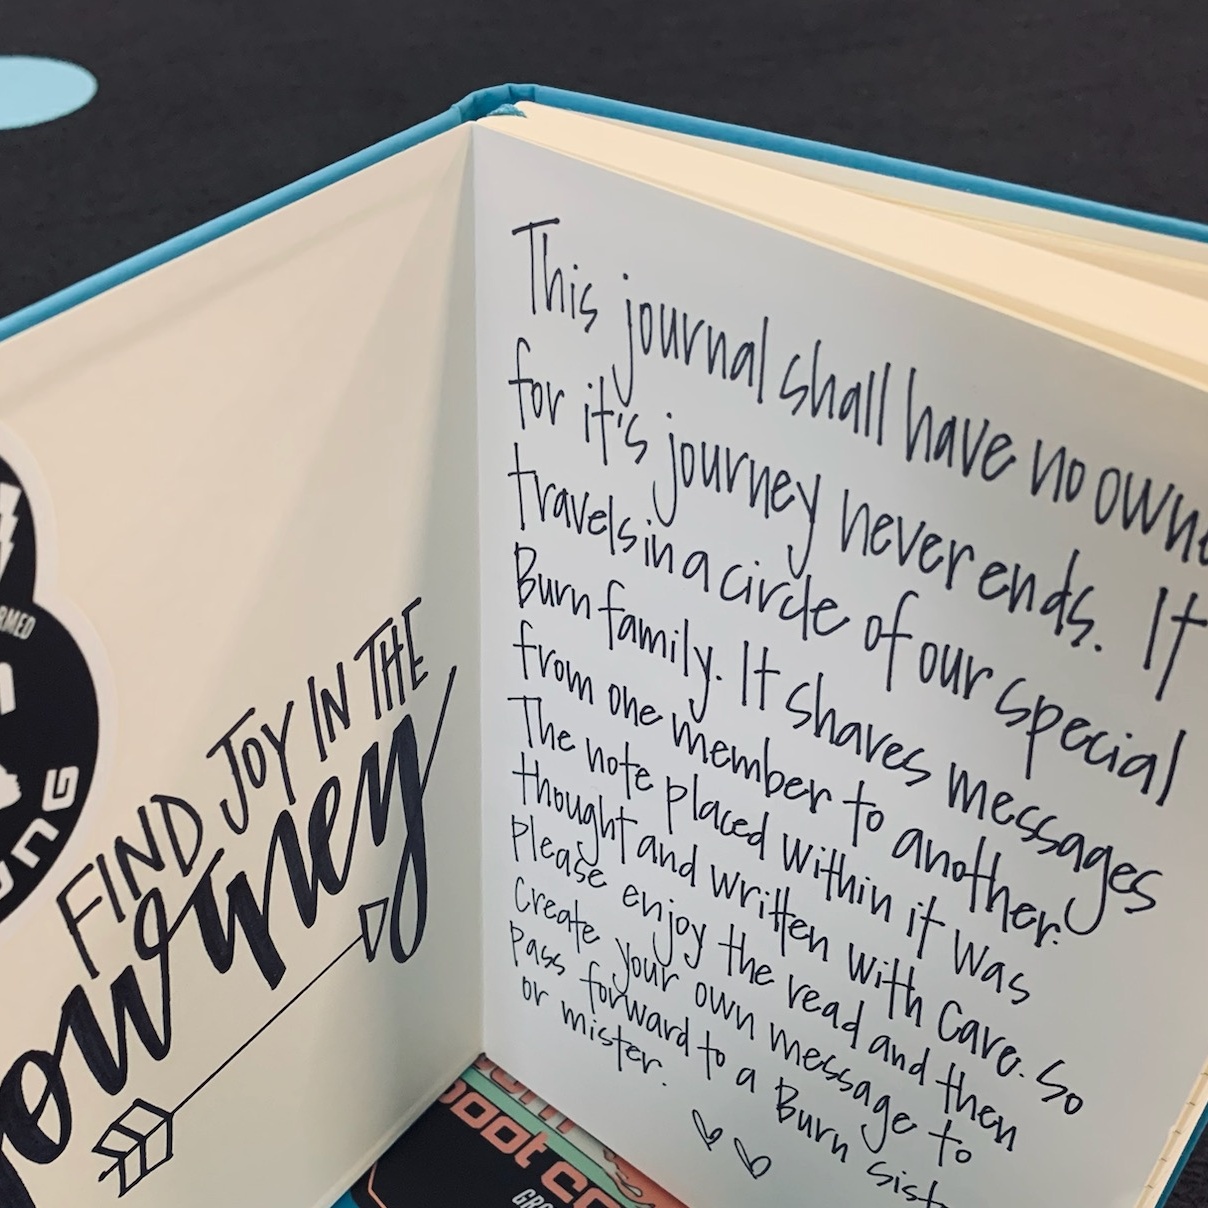 FIND JOY IN THE
Journey
This journal shall have no
for it's journey never ends. It
travels in a circle of our special
Burn family. It shares messages
from one member to another.
The note placed within it was
thought and written with care. So
please enjoy the read and then
create your own message to
pass forward to a Burn
or mister.